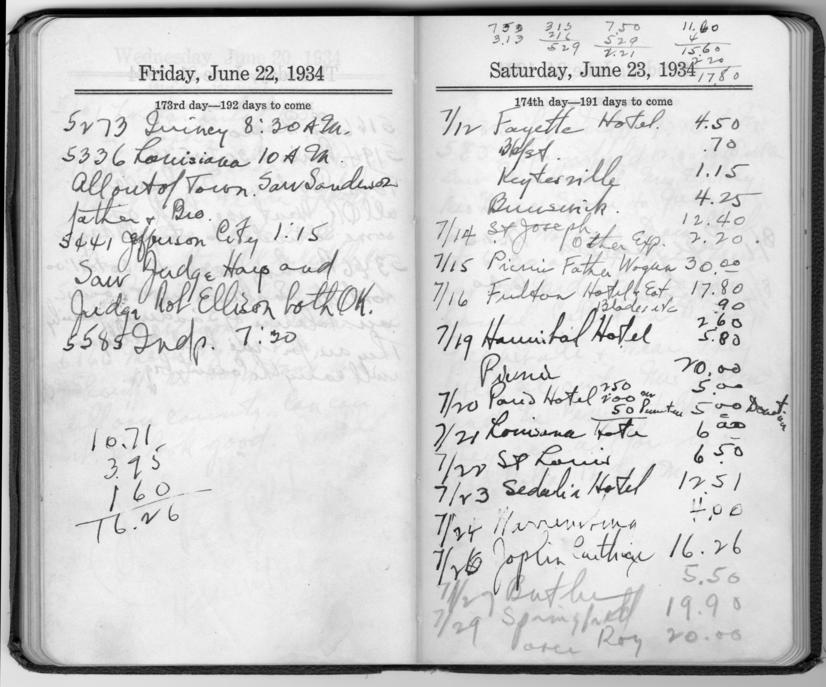 Friday, June 22, 1934
173rd day—192 days to come
5273 Quincy 8:30 A.M.
5336 Louisiana 10 A.M.
All out of Town. Saw Sanderson
father & Bro.
5441 Jefferson City 1:15
Saw Judge Harp and
Judge Rob Ellison both OK.
5585 Indp. 7:30
10.71
3.95
1 60
16.26
753 313 7.50 11.60
3.13 216 529 4
529 2.21 15.60
2.20
17.80
Saturday, June 23, 1934
174th day—191 days to come
7/12 Fayette Hotel. 4.50
.70
Keytesville 1.15
Brunswick. 4.25
7/14 St Joseph 12.40
Other Exp. 2.20.
7/15 Picnic Father Wogan 30.00
7/16 Fulton Hotel & Eat 17.80
Blades etc .90
2.60
7/19 Hannibal Hotel 5.80
Picnic 20.00
7/20 Paris Hotel 250 5.00
200
50 5 00 Donation
7/21 Louisiana Hote 6 00
7/22 St Louis 6.50
7/23 Sedalia Hotel 12.51
7/24 4.00
7/26 Joplin Carthage 16.26
7/27 Butler 5.50
7/29 Springfield 19.90
Roy 20.00